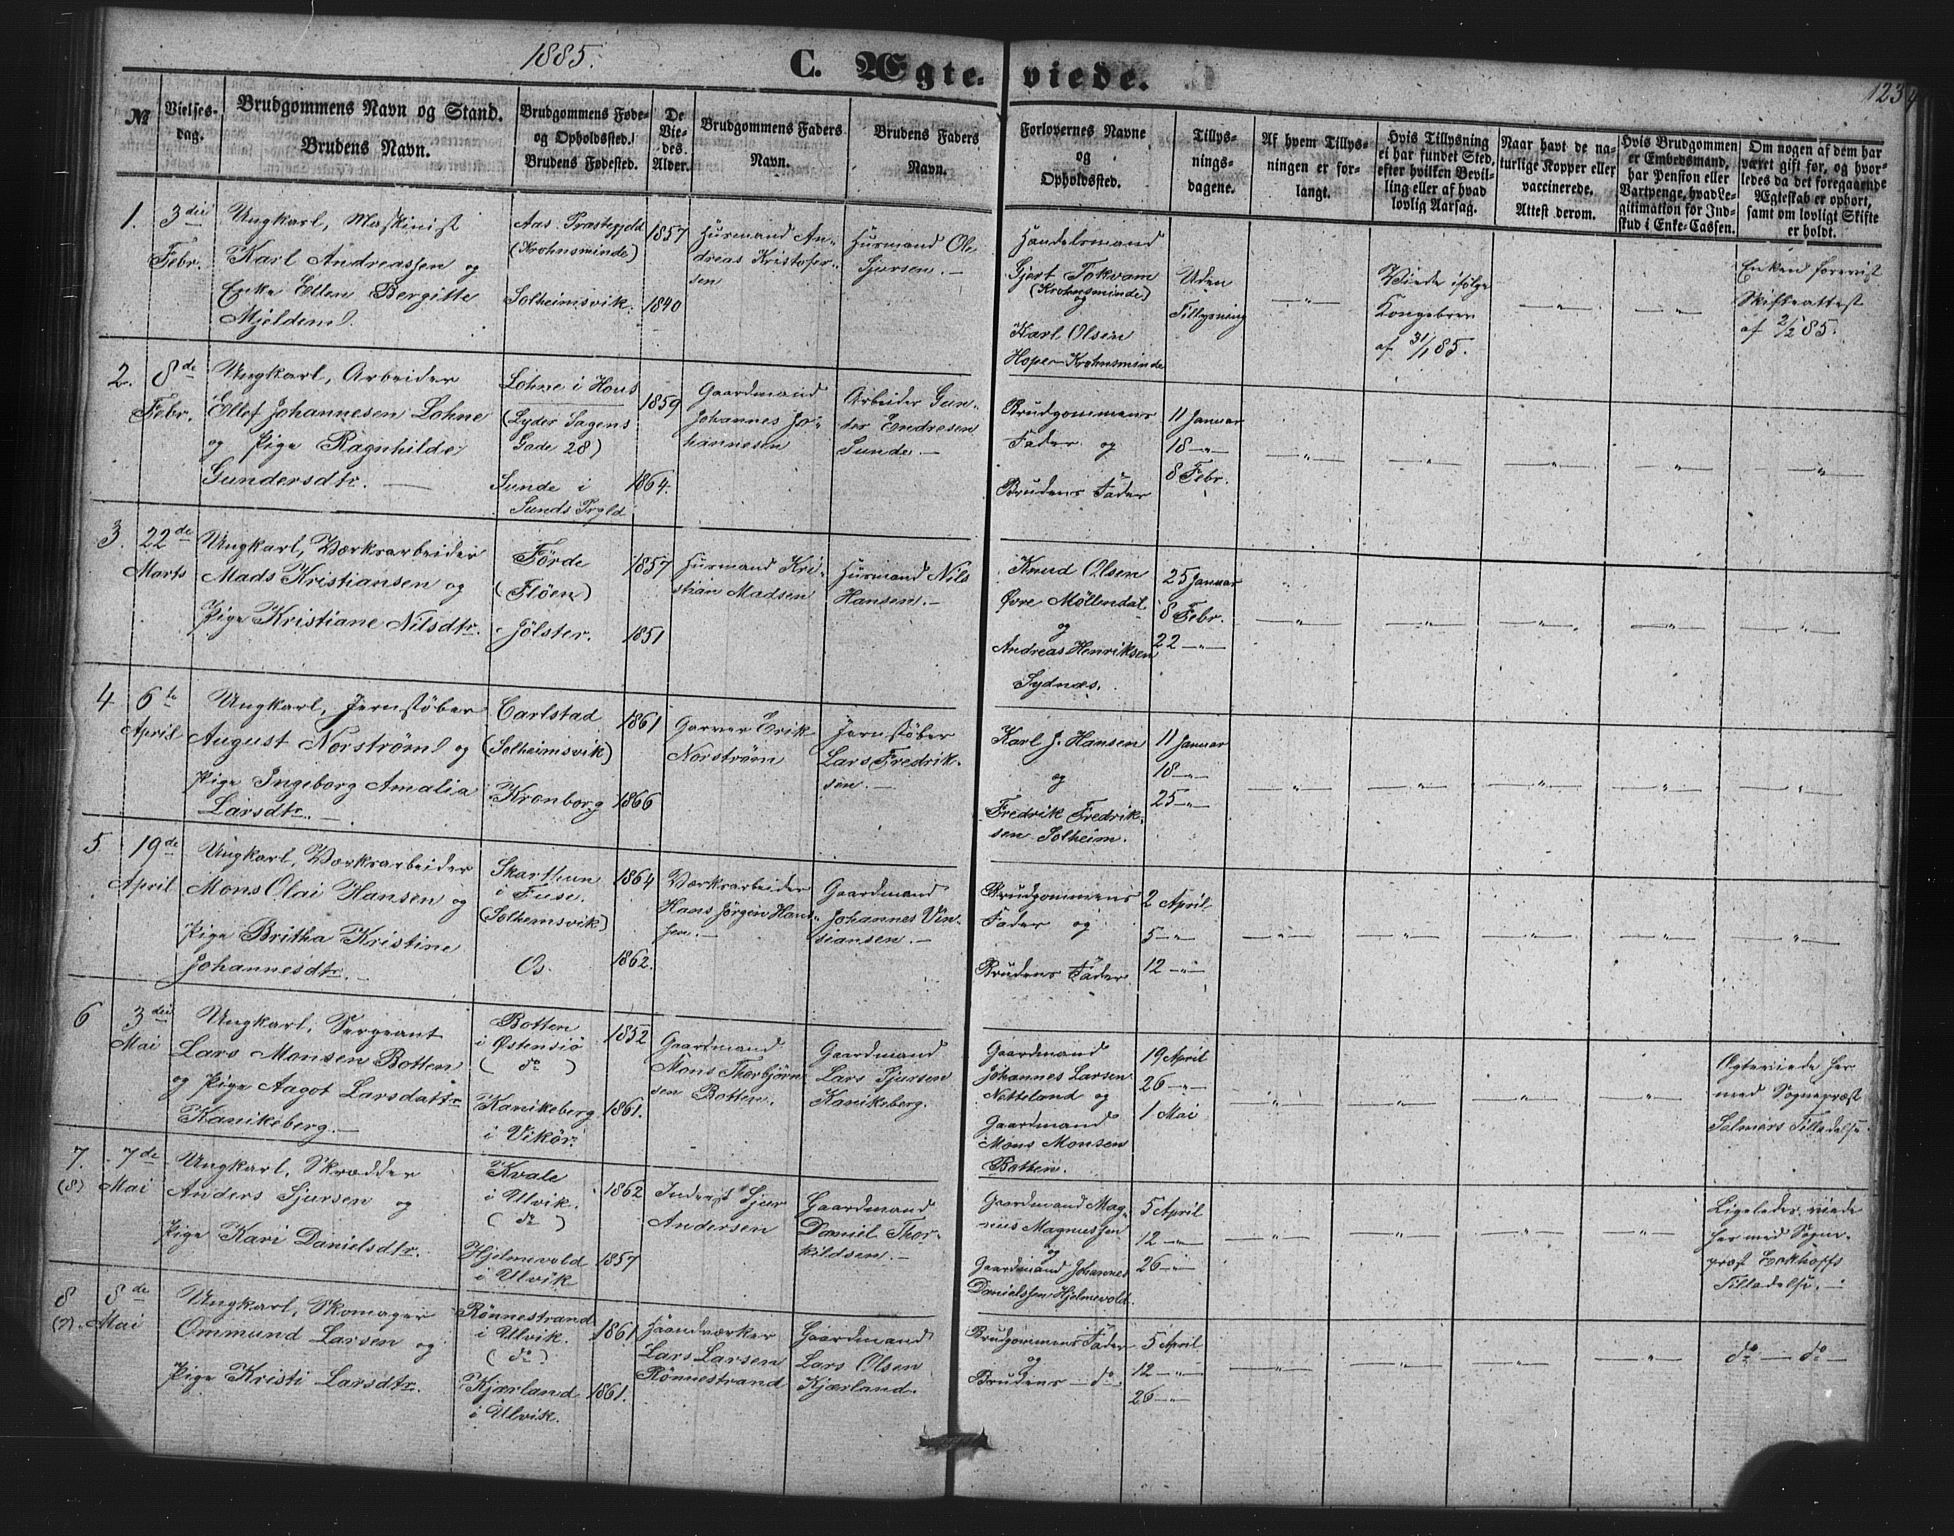 1885.
C. Ægteviede.
1234
№
Vielses-
dag.
Brudgommens Navn og Stand.
Brudens Navn.
Brudgommens Føde-
og Opholdssted.
Brudens Fødested.
De
Vie-
des
Alder.
Brudgommens Faders
Navn.
Brudens Faders
Navn.
Forlovernes Navne
og
Opholdssted.
Tillys-
nings-
dagene.
Af hvem Tillys-
ningen er for-
langt.
Hvis Tillysning
ei har fundet Sted,
efter hvilken Bevil-
ling eller af hvad
lovlig Aarsag.
Naar havt de na-
turlige Kopper eller
vaccinerede.
Attest derom.
Hvis Brudgommen
er Embedsmand,
har Pension eller
Vartpenge, hvad Le-
gitimation for Ind-
skud i Enke-Cassen.
Om nogen af dem har
været gift før, og hvor-
ledes da det foregaaende
Ægteskab er ophørt,
samt om lovligt Skifte
er holdt.
1.
3die
Febr.
Ungkarl, Maskinist
Karl Andreassen og
Enke Ellen Bergitte
Mjeldem.
Aas Præstegjeld
(Krohnsminde)
Solheimsvik.
1857
1840
Husmand An-
dreas Kristofer-
sen
Husmand Ole
Sjursen. —
Handelsmand
Gjert Tokvam
(Krohnsminde)
og
Karl Olsen
Hope – Krohnsminde
Uden
Tillysning
—„—
Viede ifølge
Kongebrev
af 31/1 85.
—„—
—„—
Enken forevist
Skifteattest
af 2/2 85.
2.
8de
Febr.
Ungkarl, Arbeider
Ellef Johannesen Lohne
og Pige Ragnhilde
Gundersdtr. —
Lohne i Hous
(Lyder Sagens
Gade 28)
Sunde i
Sunds Prgld
1859
1864.
Gaardmand
Johannes Jo-
hannesen
Arbeider Gun-
der Endresen
Sunde. —
Brudgommens
Fader og
Brudens Fader
11 Januar
18 —„—
8 Febr.
—„—
—„—
—„—
—„—
—„—
3.
22de
Marts
Ungkarl, Værksarbeider
Mads Kristiansen og
Pige Kristiane Nilsdtr.
Förde
(Flöen)
Jølster.
1857
1851
Husmand Kri-
stian Madsen
Husmand Nils
Hansen. —
Knud Olsen
Øvre Möllendal
og
Andreas Henriksen
Sydnæs.
25 Januar
8 Febr.
22 —„—
—„—
—„—
—„—
—„—
—„—
4
6te
April
Ungkarl, Jernstøber
August Norström og
Pige Ingeborg Amalia
Larsdtr. —
Carlstad
(Solheimsvik)
Kronborg
1861
1866
Garver Erik
Norström
Jernstøber
Lars Fredrik-
sen. —
Karl J. Hansen
og
Fredrik Fredrik-
sen Solheim.
11 Januar
18 —„—
25 —„—
—„—
—„—
—„—
—„—
—„—
5
19de
April
Ungkarl, Værksarbeider
Mons Olai Hansen og
Pige Britha Kristine
Johannesdtr. —
Skarthun
i Fuse.
(Solhemsvik)
Os.
1864
1862.
Værksarbeider
Hans Jörgen Han-
sen. —
Gaardmand
Johannes Vin-
siansen. —
Brudgommens
Fader og
Brudens Fader
2 April
5 —„—
12 —„—
—„—
—„—
—„—
—„—
—„—
6
3die
Mai
Ungkarl, Sergeant
Lars Monsen Botten
og Pige Aagot Larsdattr
Kanikeberg. —
Botten
i Østensiø
( do )
Kanikeberg
i Vikör.
1852
1861.
Gaardmand
Mons Thorbjörn-
sen Botten.
Gaardmand
Lars Sjursen
Kanikeberg.
Gaardmand
Johannes Larsen
Netteland og
Gaardmand
Mons Monsen
Botten.
19 April
26 —„—
1 Mai
—„—
—„—
—„—
—„—
Ægteviede her
med Sognepræst
Selmers Tilladelse.
7.
(8)
7de
Mai
Ungkarl, Skrædder
Anders Sjursen og
Pige Kari Danielsdtr.
Kvale
i Ulvik.
( do )
Hjelmevold
i Ulvik
1862
1857
Inderst Sjur
Andersen
Gaardmand
Daniel Thor-
kildsen. —
Gaardmand Mag-
nus Magnussen
og
Gaardmand Johannes
Danielssen Hjelmevold.
5 April
12 —„—
26 —„—
—„—
—„—
—„—
—„—
Ligeledes viede
her med Sogne-
præst Eckhoffs
Tilladelse. —
8
(7).
8de
Mai
Ungkarl, Skomager
Ommund Larsen og
Pige Kristi Larsdtr.
Rönnestrand
i Ulvik.
( do )
Kjærland
i Ulvik.
1861
1861.
Haandværker
Lars Larsen
Rönnestrand
Gaardmand
Lars Olsen
Kjærland.
Brudgommens Fader
og
Brudens — do.
5 April
12 —„—
26 —„—
—„—
—„—
—„—
—„—
do — do —